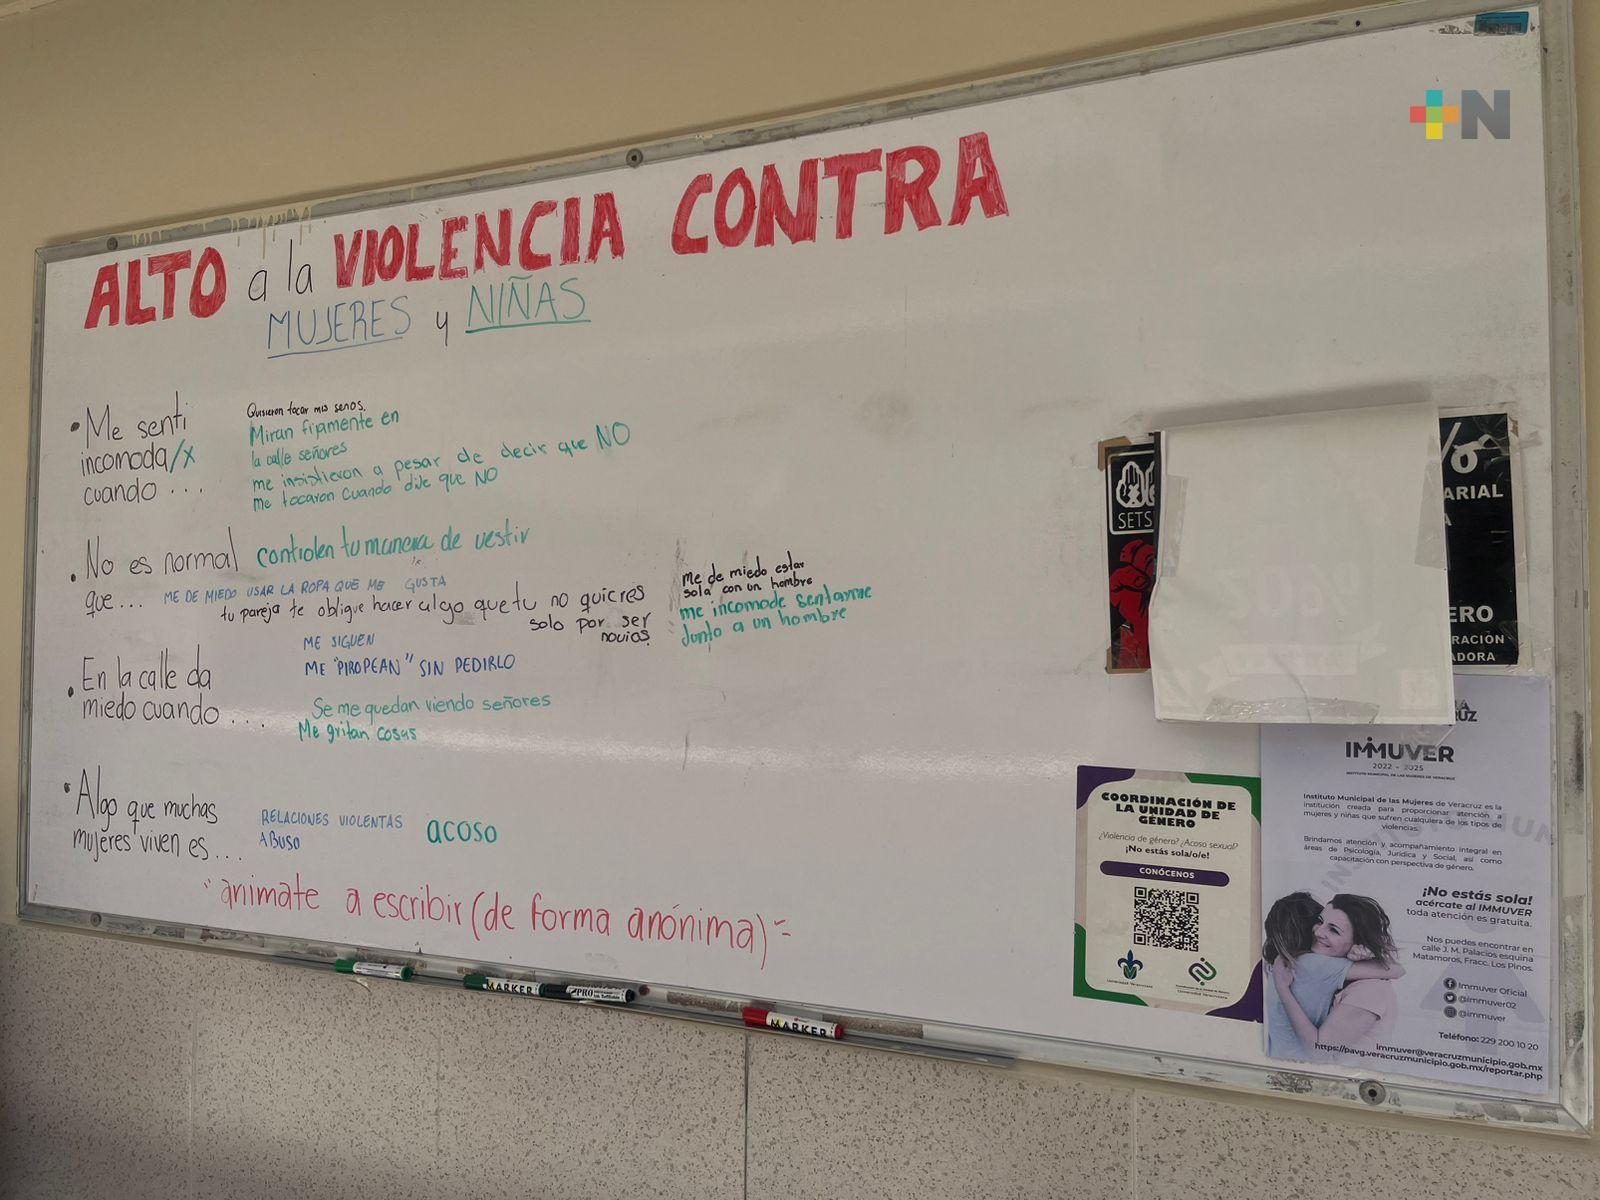 +N
ALTO a la VIOLENCIA CONTRA
MUJERES y NIÑAS
• Me senti
incomoda/x
cuando ...
Quisieron tocar mis senos.
Miran fijamente en
la calle señores
me insistieron a pesar de decir que NO
me tocaron cuando dije que NO
• No es normal
que...
controlen tu manera de vestir
ME DE MIEDO USAR LA ROPA QUE ME GUSTA
tu pareja te obligue hacer algo que tu no quieres
solo por ser
novios
me de miedo estar
sola con un hombre
me incomode sentarme
Junto a un hombre
• En la calle da
miedo cuando ...
ME SIGUEN
ME "PIROPEAN" SIN PEDIRLO
Se me quedan viendo señores
Me gritan cosas
• Algo que muchas
mujeres viven es...
RELACIONES VIOLENTAS
ABUSO
acoso
"animate a escribir (de forma anónima)"
SETS
%
ARIAL
A
ERO
RACIÓN
ADORA
COORDINACIÓN DE
LA UNIDAD DE
GÉNERO
¿Violencia de género? ¿Acoso sexual?
¡No estás sola/o/e!
CONÓCENOS
Universidad Veracruzana
Universidad Veracruzana
RUZ
IMMUVER
2022 - 2025
INSTITUTO MUNICIPAL DE LAS MUJERES DE VERACRUZ
Instituto Municipal de las Mujeres de Veracruz es la
institución creada para proporcionar atención a
mujeres y niñas que sufren cualquiera de los tipos de
violencias.
Brindamos atención y acompañamiento integral en
áreas de Psicología, Jurídica y Social, así como
capacitación con perspectiva de género.
¡No estás sola!
acércate al IMMUVER
toda atención es gratuita.
Nos puedes encontrar en
calle J. M. Palacios esquina
Matamoros, Fracc. Los Pinos.
Immuver Oficial
@immuver02
@immuver
Teléfono: 229 200 10 20
immuver@veracruzmunicipio.gob.mx
https://pavg.veracruzmunicipio.gob.mx/reportar.php
MARKER
PRO
MARKER